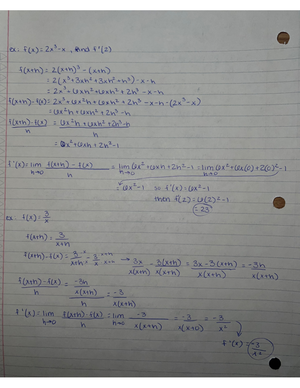 ex. f(x) = 2x³-x, find f'(2)
f(x+h) = 2(x+h)³ - (x+h)
= 2(x³+3xh²+3xh²+h³) - x-h
= 2x³+6x²h+6xh²+2h³ -x-h
f(x+h)-f(x) = 2x³+6x²h+6xh²+2h³-x-h-(2x³-x)
= 6x²h+6xh²+2h³-h
f(x+h)-f(x) / h = 6x²h+6xh²+2h³-h / h
= 6x²+6xh+2h²-1
f'(x) = lim h→0 f(x+h)-f(x) / h = lim h→0 6x²+6xh+2h²-1 = lim h→0 6x²+6x(0)+2(0)²-1
= 6x²-1 so f'(x) = 6x²-1
then f(2) = 6(2)²-1
= 23
ex. f(x) = 3/x
f(x+h) = 3/x+h
f(x+h)-f(x) = 3/x+h - 3/x → 3x/x(x+h) - 3(x+h)/x(x+h) = 3x-3(x+h)/x(x+h) = -3h/x(x+h)
f(x+h)-f(x) / h = -3h/x(x+h) / h = -3/x(x+h)
f'(x) = lim h→0 f(x+h)-f(x) / h = lim h→0 -3/x(x+h) = -3/x(x+0) = -3/x²
f'(x) = -3/x²